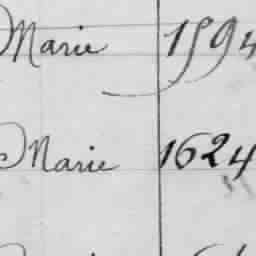 Marie 1594
Marie 1624